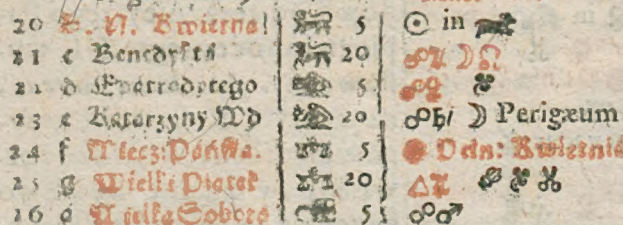 20 b. N. Kwietna 5 ☉ in
21 c Benedykta 20 ☍♃ ☽☊
22 d Epatrodytego 5 ☍♀
23 e Katarzyny Wd 20 ☍♄ ☽ Perigæum
24 f Wiecz: Pańska. 5 Peln: Kwietnia
25 g Wielki Piątek 20 △♃
26 a Wielka Sobota 5 ☍♂